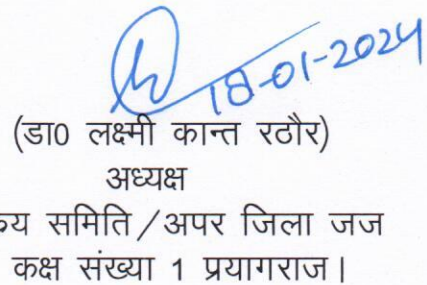 18-01-2024
(डा0 लक्ष्मी कान्त रठौर)
अध्यक्ष
समिति/अपर जिला जज
कक्ष संख्या 1 प्रयागराज।